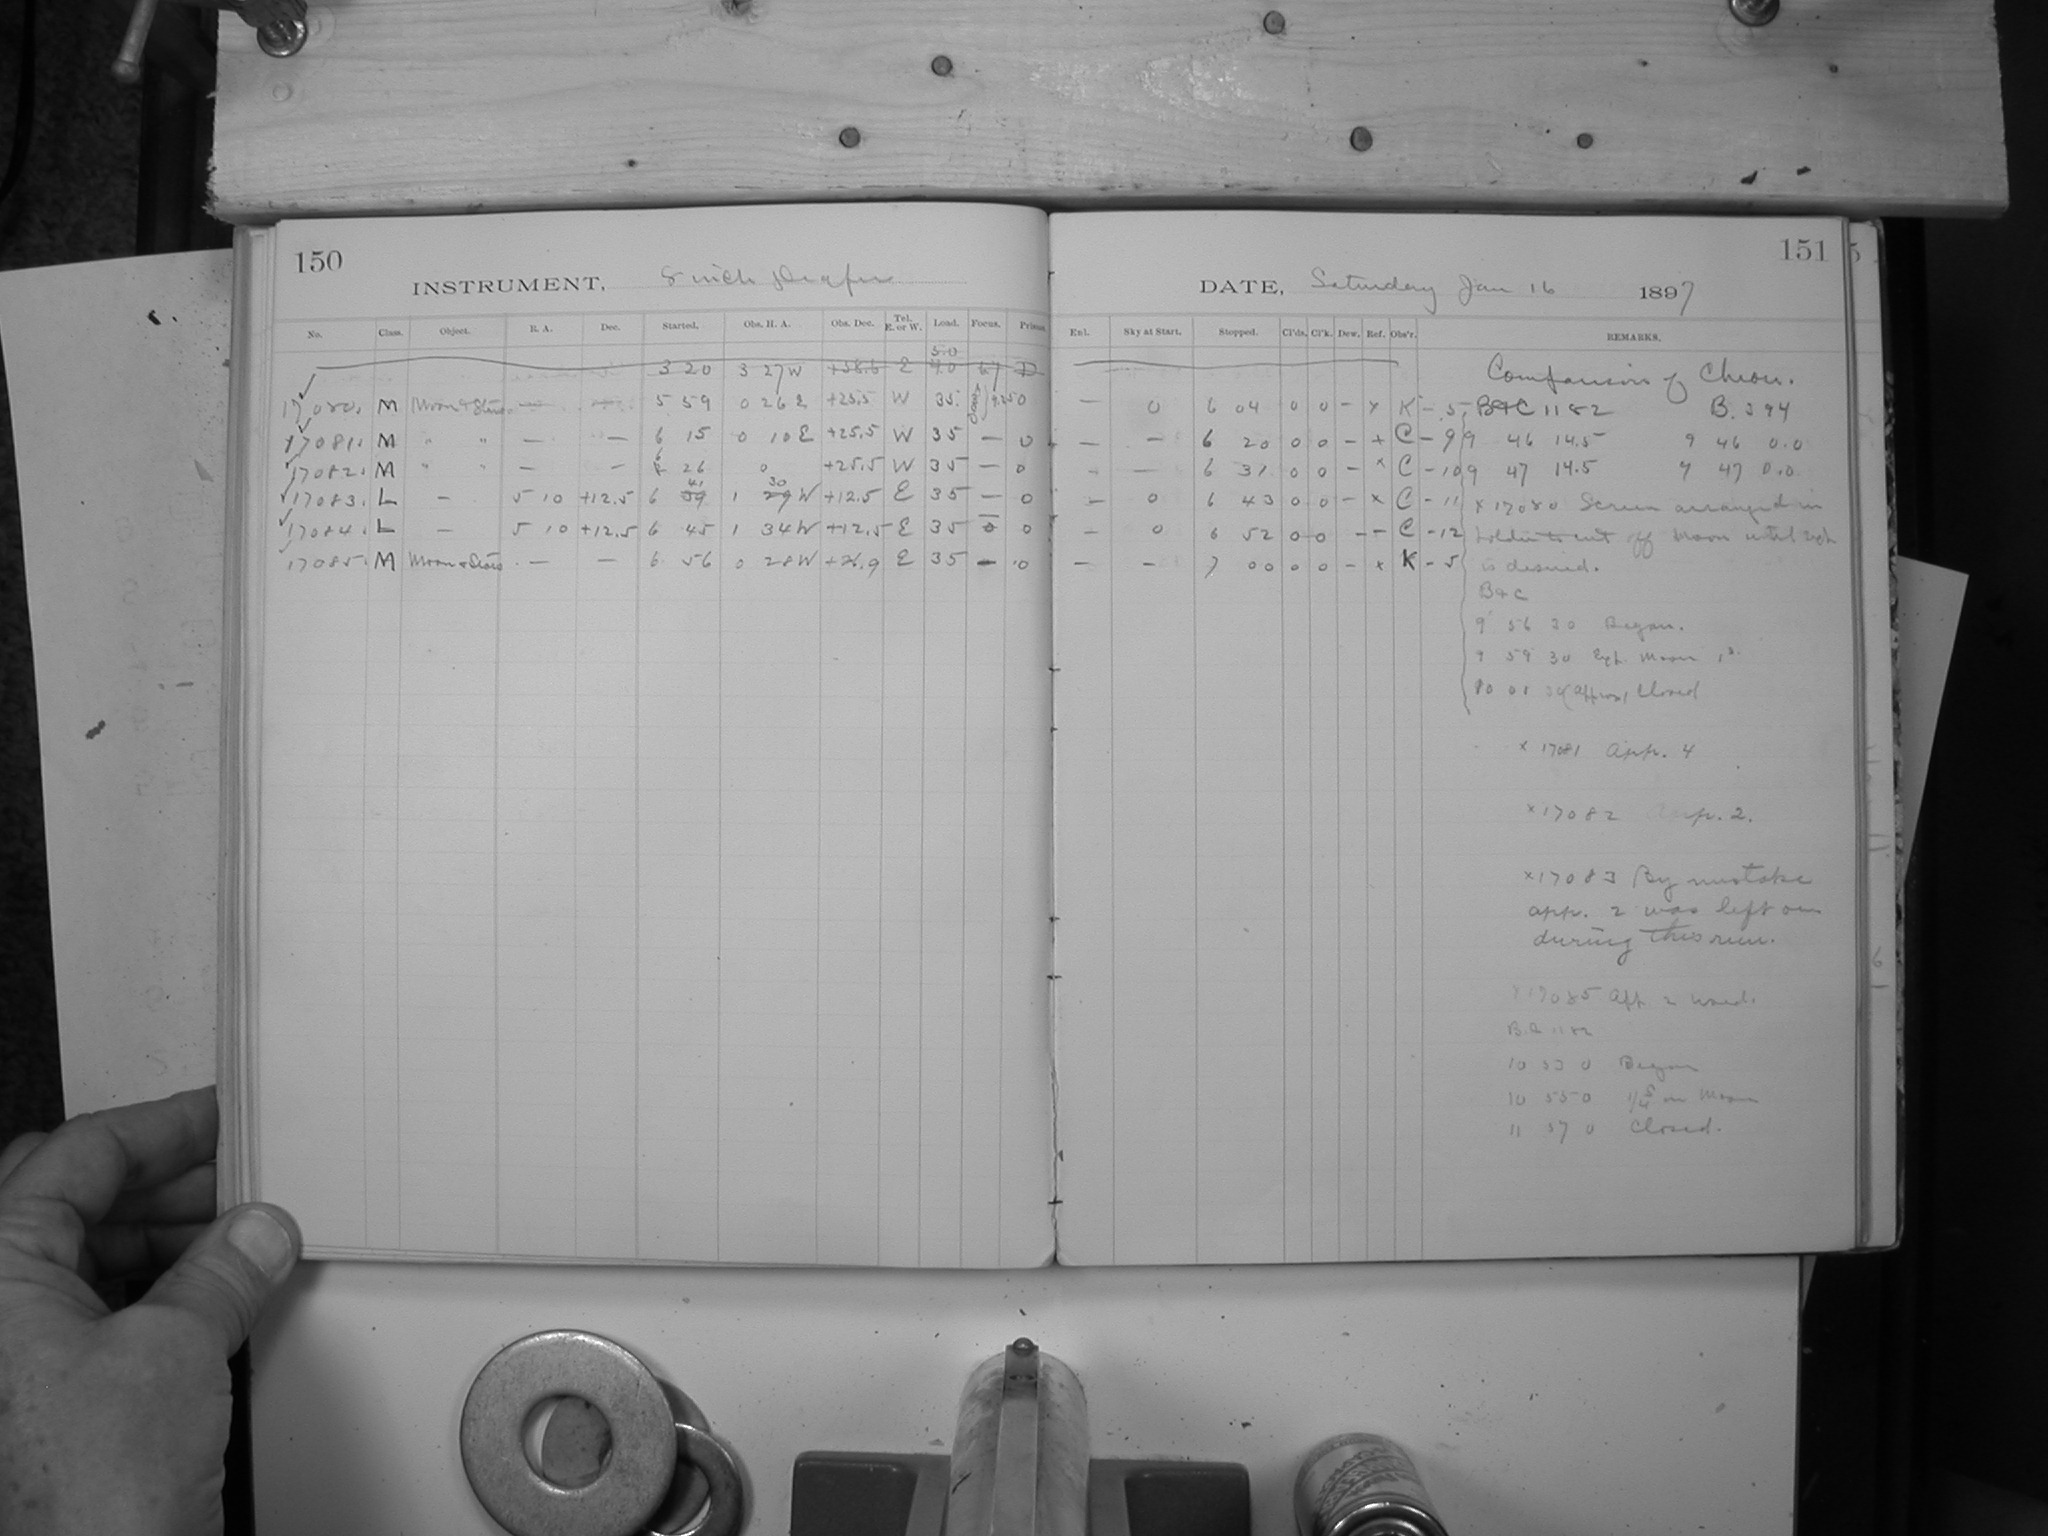 150
INSTRUMENT, 8 inch Draper
No. Class. Object. R. A. Dec. Started. Obs. H. A. Obs. Dec. Tel. E. or W. Load. Focus. Prism.
3 20 3 27W +58.6 E 5.0 67
17080. M Moon & Stars — — 5 59 0 26 E +25.5 W 35. 0
17081. M " " — — 6 15 0 10 E +25.5 W 35 — 0
17082. M " " — — 6 26 0 +25.5 W 35 — 0
17083. L — 5 10 +12.5 6 39 41 1 29 30 W +12.5 E 35 — 0
17084. L — 5 10 +12.5 6 45 1 34 W +12.5 E 35 0 0
17085. M Moon & Stars — — 6 56 0 28 W +26.9 E 35 — 0
151
DATE, Saturday Jan 16 1897
Enl. Sky at Start. Stopped. Cl'ds. Cl'k. Dew. Ref. Obs'r. REMARKS.
Comparison of Chron.
— 0 6 04 0 0 — x K - 5 B&C 1182 B. 394
— — 6 20 0 0 — x C - 9 9 46 14.5 9 46 0.0
- — 6 31 0 0 — x C - 10 9 47 14.5 9 47 0.0
— 0 6 43 0 0 — x C - 11 x 17080 Screen arranged in
— 0 6 52 0 0 — — C - 12 holder to cut off Moon until
— — 7 00 0 0 — x K - 5 is desired.
B&C
9 56 30 Began.
9 59 30 Exp. Moon 1s.
10 01 30 (approx) Closed
x 17081 App. 4
x 17082 App. 2.
x 17083 By mistake
app. 2 was left on
during this run.
x 17085 App. 2 used.
B.C 1182
10 53 0 Began
10 55 0 1/4 s on Moon
11 57 0 Closed.